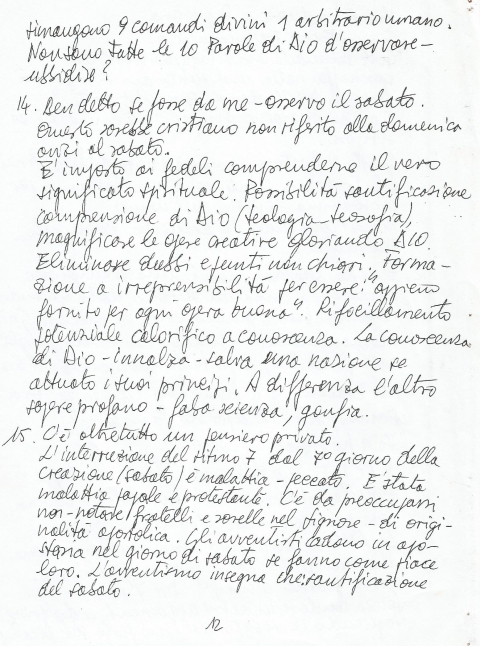 rimangono 9 comandi divini 1 arbitrario umano.
Non sono tutte le 10 Parole di Dio d'osservare-
ubbidire?
14. Ben detto se fosse da me - osservo il sabato.
Questo sarebbe cristiano non riferito alla domenica
anzi al sabato.
E' imposto ai fedeli comprenderne il vero
significato spirituale. Possibilità santificazione
comprensione di Dio (teologia-teosofia),
magnificare le opere creative gloriando DIO.
Eliminare dubbi e punti non chiari. Forma-
zione a irreprensibilità per essere: "appieno
fornito per ogni opera buona". Rifocillamento
potenziale calorifico a conoscenza. La conoscenza
di Dio - innalza - salva una nazione se
attuato i suoi principi. A differenza l'altro
sapere profano - falsa scienza, gonfia.
15. C'è oltretutto un pensiero privato.
L'interruzione del ritmo 7 dal 7º giorno della
creazione (sabato) è malattia - peccato. E' stata
malattia papale e protestante. C'è da preoccuparsi
non-notare/fratelli e sorelle nel Signore - di origi-
nalità apostolica. Gli avventisti cadono in apo-
stasia nel giorno di sabato se fanno come piace
loro. L'avventismo insegna che: santificazione
del sabato.
12